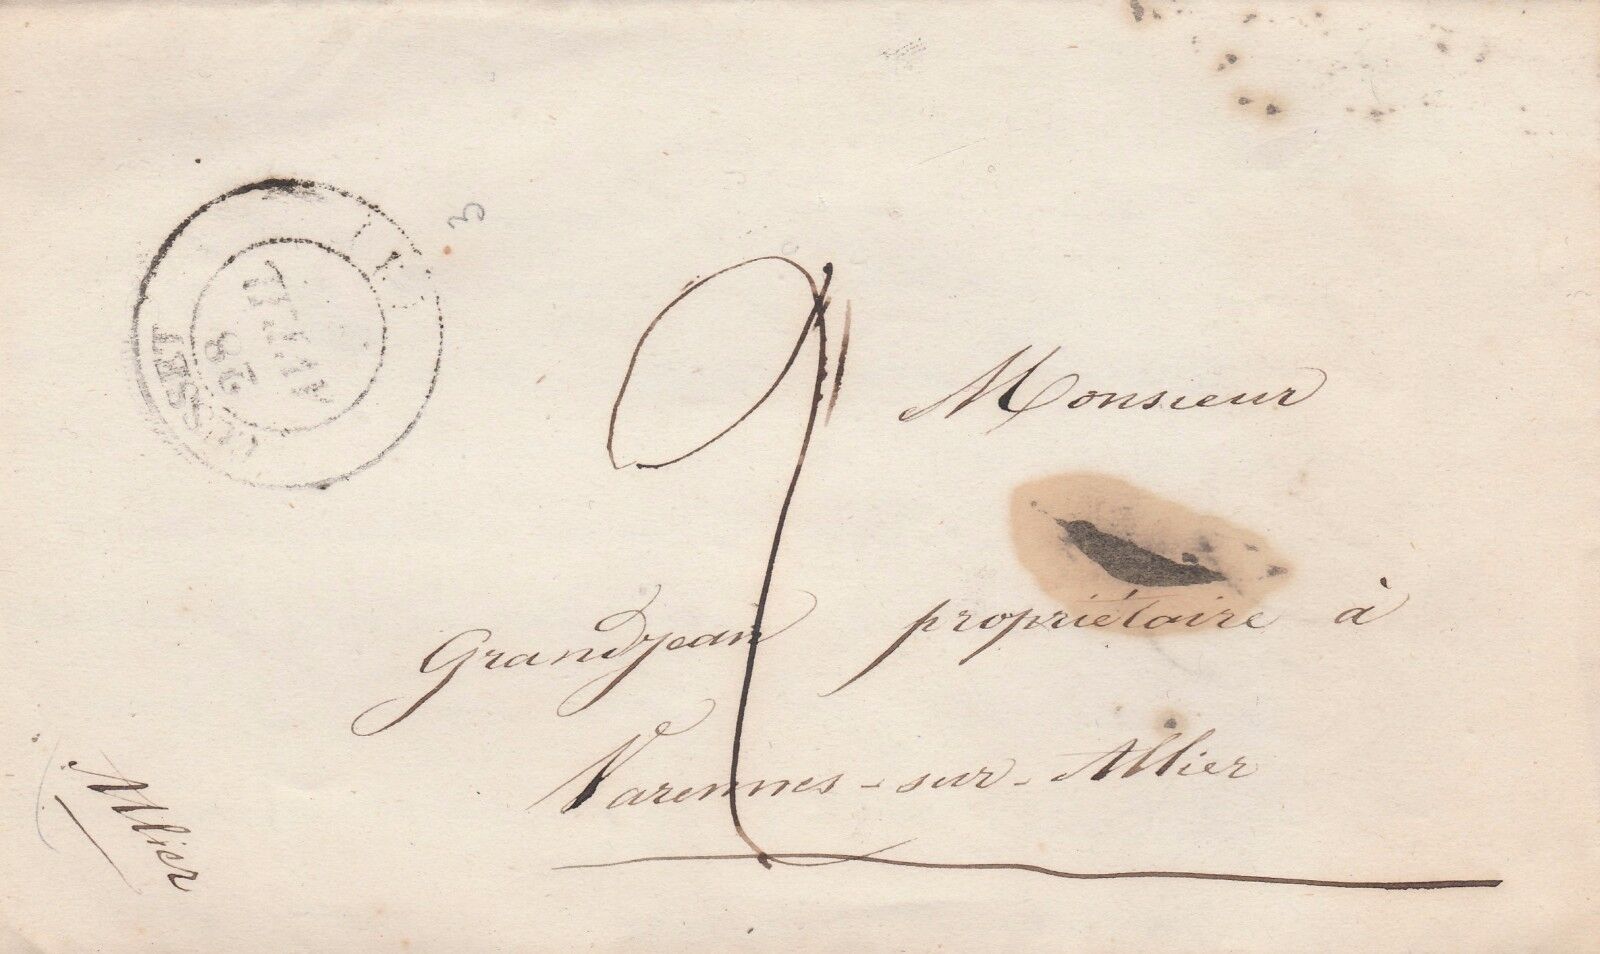 CUSSET
28
AVRIL
3
2
Monsieur
Grandjean propriétaire à
Varennes-sur-Allier
Allier